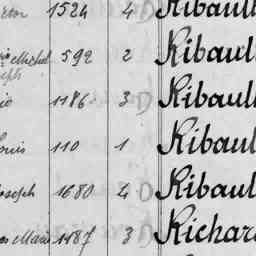 1524 4 Ribaull
Michel 592 2 Ribaul
seph
1186 3 Ribaull
ouis 110 1 Ribaul
oseph 1680 4 Ribaul
Marie 1187 3 Richar